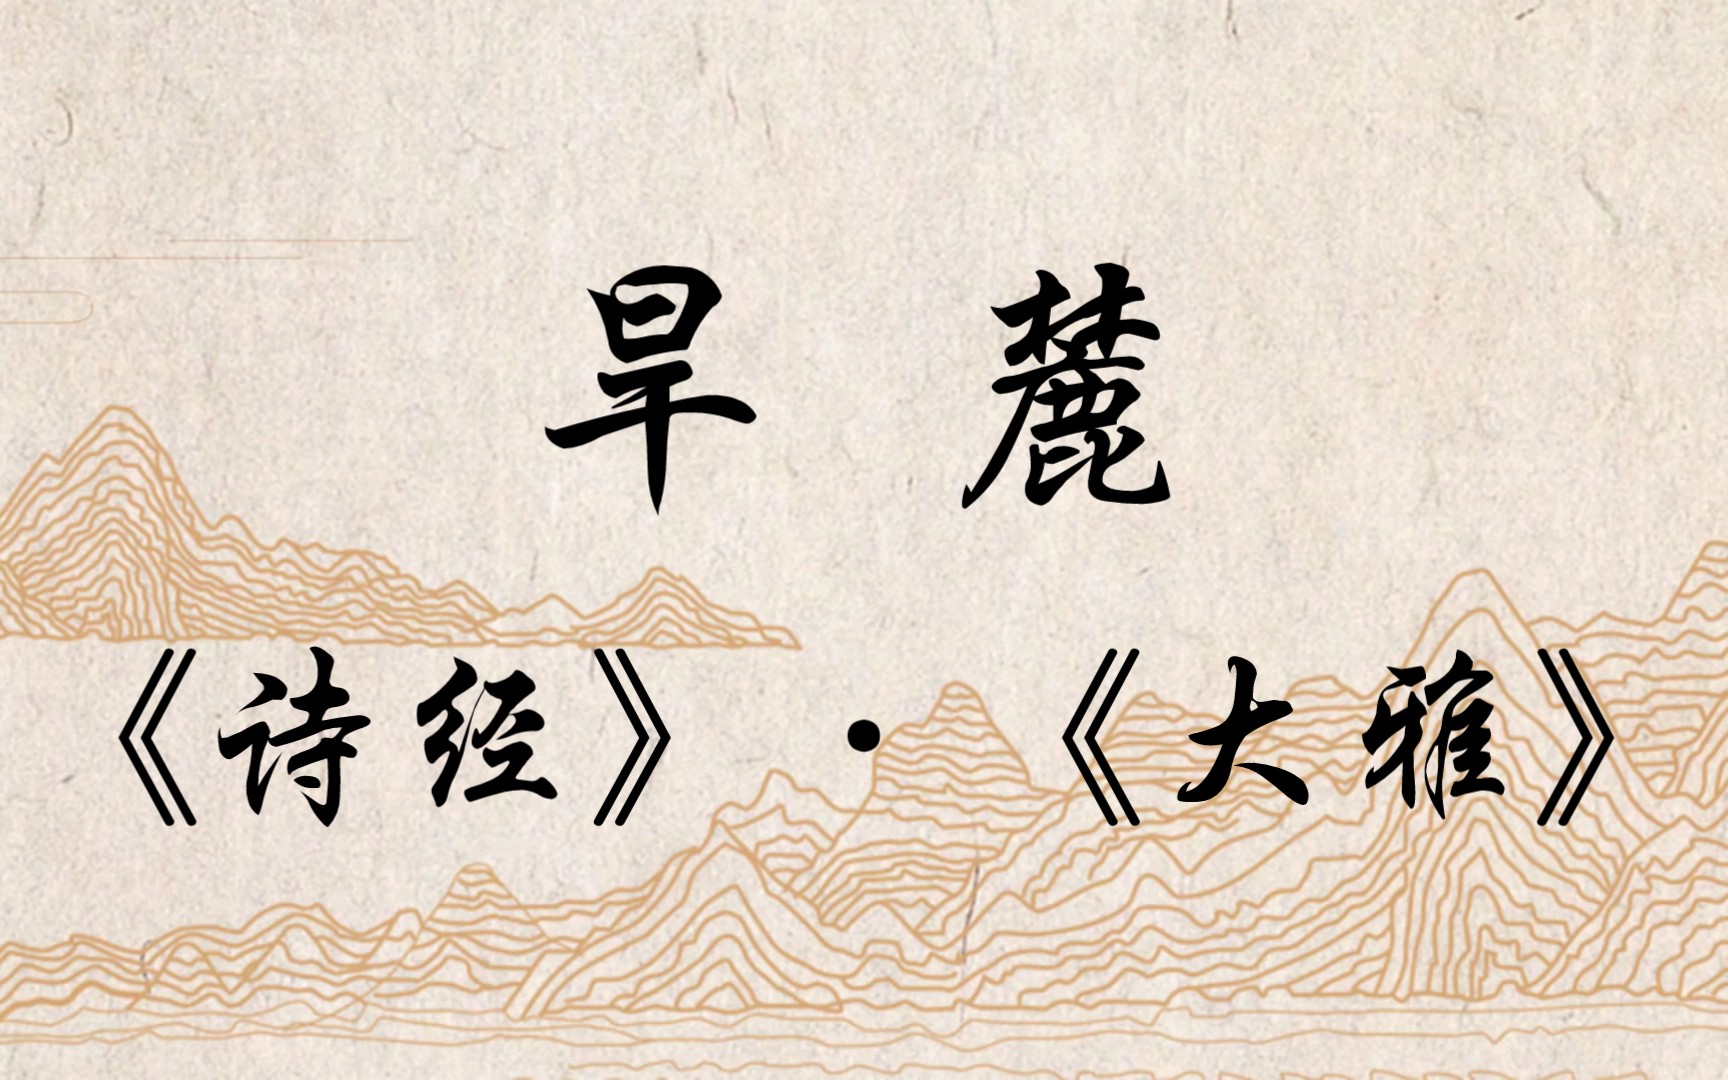 旱 麓
《诗经》 · 《大雅》